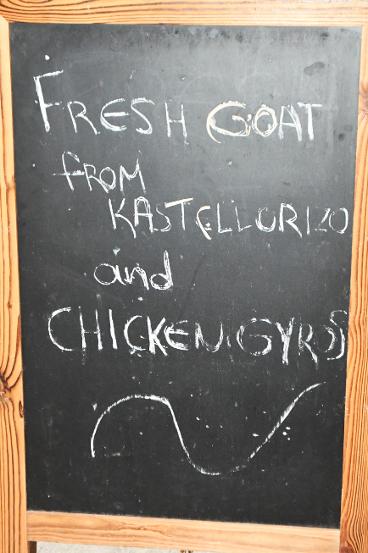 FRESH GOAT
fROM
KASTELLORIZO
and
CHICKEN GYROS